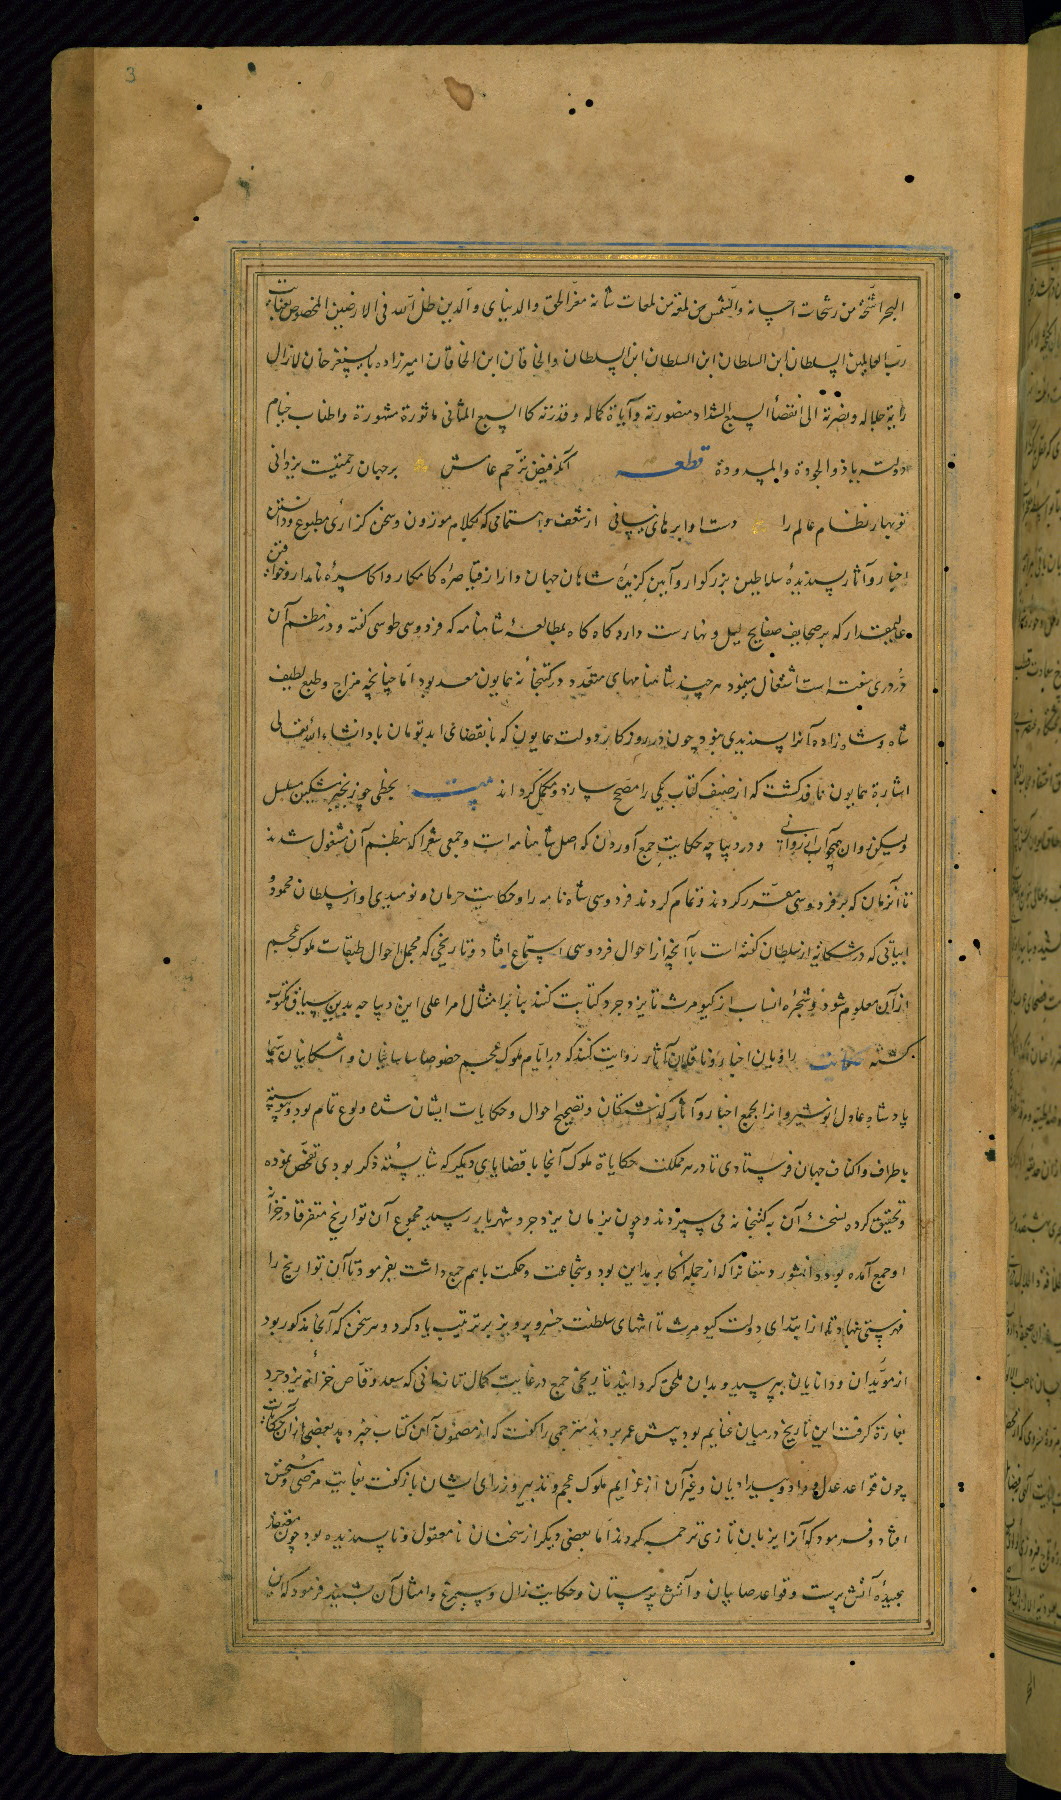 3
البحر رشحة من رشحات احسانه والشمس من لمعة من لمعات شانه معز الحق والدنیای والدین ظل الله فی الارضین المخصوص بعنایت
رب العالمین السلطان ابن السلطان ابن السلطان ابن السلطان والخاقان ابن الخاقان امیرزاده بایسنغر خان لازال
رایة جلاله ونصرته الی انقضاء السبع الشداد منصورة وآیاة کماله وقدرته کالسبع المثانی ماثورة مشهورة واطناب خیام
دولته باذوالجودة والمدودة قطعه آنکه فیض ترحم عامش بر جهان رحمتیست یزدانی
نوبهار نظام عالم را دست او ابرهای نیسانی از شعف واستماعی که بکلام موزون وسخن گذاری مطبوع ودانستن
اخبار وآثار پسندیدهٔ سلاطین بزرگوار وآیین گزیدهٔ شاهان جهان دارا از قیاصرهٔ کامکار واکاسرهٔ نامدار وخواقین
عالیمقدار که بر صحایف صفایح لیل ونهارست دارد گاه گاه بمطالعهٔ شاهنامه که فردوسی طوسی گفته ودر نظم آن
در دری سفته است اشتغال میفرمود هرچند شاهنامهای متعدد در کتبخانهٔ همایون معد بود اما چنانچه مزاج وطبع لطیف
شاه وشاه زاده آنرا پسندیدی نبود چون در روزگار دولت همایون که بانقضای ابد توامان باد انشاء الله تعالی
اشارة همایون نافد گشت که از صنف کتاب یکی را مصحح سازد ومکمل گرداند بیت بخطی چو زنجیر مشکین مسلسل
ولیکن روان همچو آب از روانی ودر دیباچه حکایت جمع آوردن که اصل شاهنامه است وجمعی شعرا که بنظم آن مشغول شدند
تا آنزمان که بر فردوسی مقرر کردند وتمام کردند فردوسی شاه نامه را وحکایت حرمان ونومیدی او از سلطان محمود و
ابیاتی که در شکایت از سلطان گفته است با آنچه از احوال فردوسی استماع افتاد وتاریخی که مجمل احوال طبقات ملوک عجم
از آن معلوم شود وشجرهٔ انساب از کیومرث تا یزدجرد کتابت کنند بنابر امتثال امر اعلی این دیباجه بدین سیاق مکتوب
گشته حکایت راویان اخبار وناقلان آثار روایت کنند که در ایام ملوک عجم خصوصا ساسانیان واشکانیان سیما
پادشاه عادل انوشیروانرا بجمع اخبار وآثار گذشتگان وتصحیح احوال وحکایات ایشان شده ولوع تمام بود وپیوسته
باطراف واکناف جهان فرستادی تا در هر مملکت حکایاة ملوک آنجا با قضایای دیگر که شایستهٔ ذکر بودی تفحص نموده
وتحقیق کرده نسخهٔ آن به کتبخانه می سپردند وچون بزمان یزدجرد شهریار رسید مجموع آن تواریخ متفرقا در خزانه
او جمع آمده بود دانشور دهقانرا که از جمله اکابر مداین بود وشجاعت وحکمت باهم جمع داشت بفرمود تا آن تواریخ را
فهرستی نهاد تا از ابتدای دولت کیومرث تا انتهای سلطنت خسرو پرویز بر ترتیب یاد کرد وهر سخن که آنجا مذکور بود
از موبدان ودانایان بپرسید وبدان ملحق گردانید تاریخی جمع در غایت کمال تا زمانی که سعد وقاص خزانهٔ یزدجرد
بغارة گرفت این تاریخ در میان غنایم بود پیش عمر بردند مترجمی را گفت که از مضمون آن کتاب خبر دهد بعضی از آن حکایات
چون قواعد عدل وداد پیدادیان وغیر آن از عزایم ملوک عجم وتدبیر وزرای ایشان باز گفت بغایت مرضی ومستحسن
افتاد وفرمود که آنرا بزبان تازی ترجمه کردند اما بعضی دیگر از سخنان نامعقول وناپسندیده بود چون
عبیدهٔ آتش پرست وقواعد صابیان وآتش پرستان وحکایت زال وسیمرغ وامثال آن بشنید فرمود که این